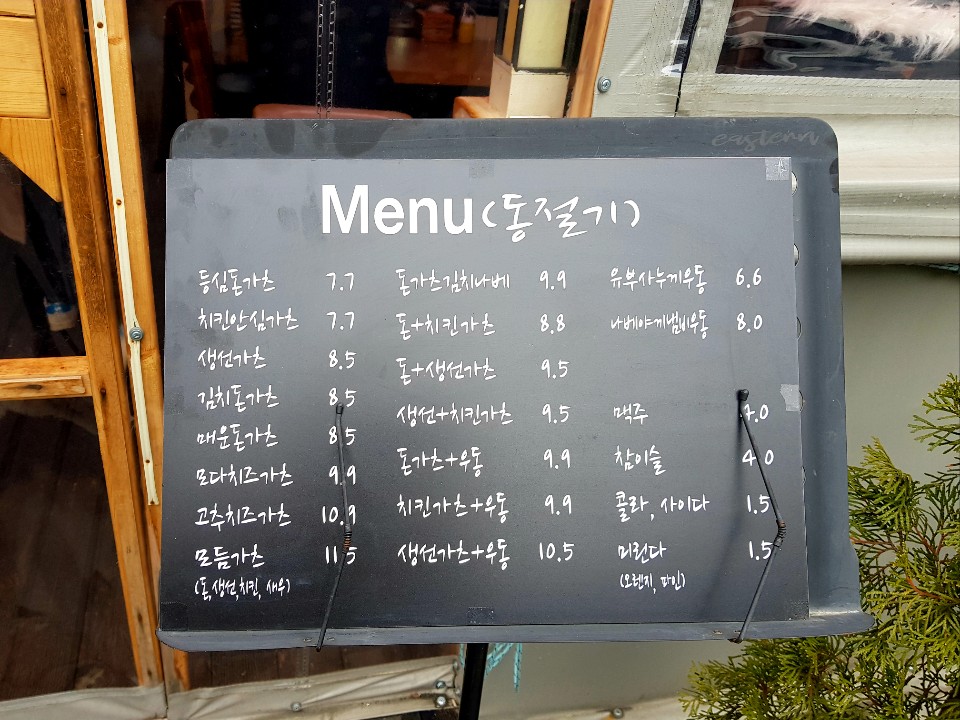 eastern
Menu(동절기)
등심돈가츠 7.7
치킨안심가츠 7.7
생선가츠 8.5
김치돈가츠 8.5
매운돈가츠 8.5
모다치즈가츠 9.9
고추치즈가츠 10.9
모듬가츠 11.5
(돈,생선,치킨, 새우)
돈가츠김치나베 9.9
돈+치킨가츠 8.8
돈+생선가츠 9.5
생선+치킨가츠 9.5
돈가츠+우동 9.9
치킨가츠+우동 9.9
생선가츠+우동 10.5
유부사누끼우동 6.6
나베야끼냄비우동 8.0
맥주
참이슬 4.0
콜라, 사이다 1.5
미린다 1.5
(오렌지, 파인)